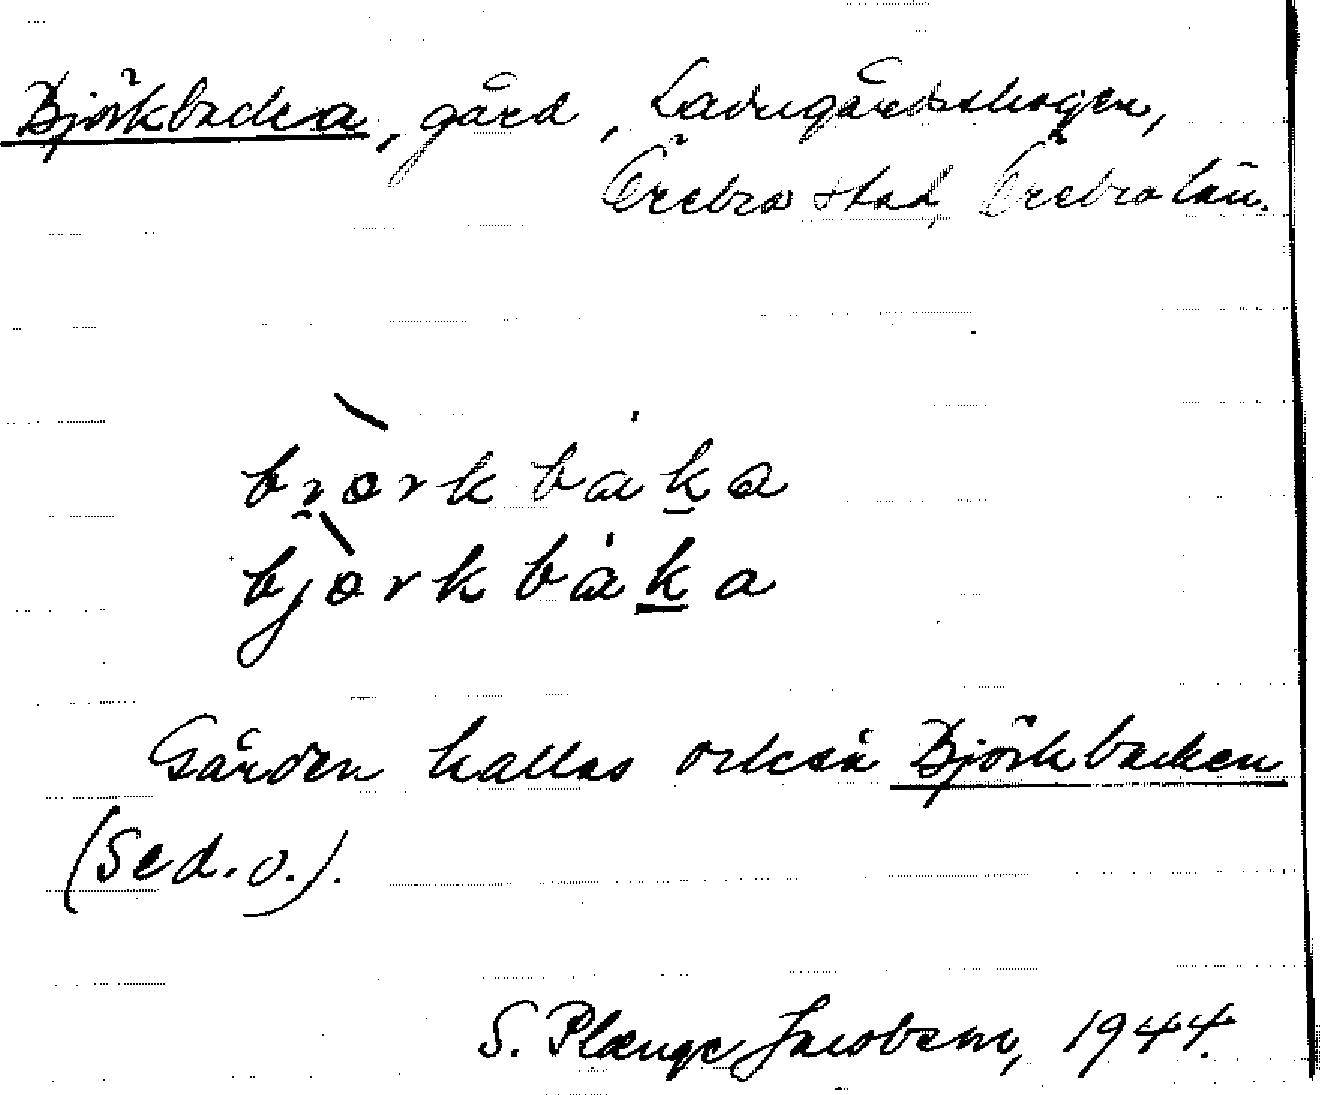 Björkbacka, gård, Ladugårdsskogen,
Örebro stad, Örebro län.
bɪ̯òrkbáka
bjòrkbáka
Gården kallas också Björkbacken
(Se d. o.).
S. Plænge Jacobsen, 1944.